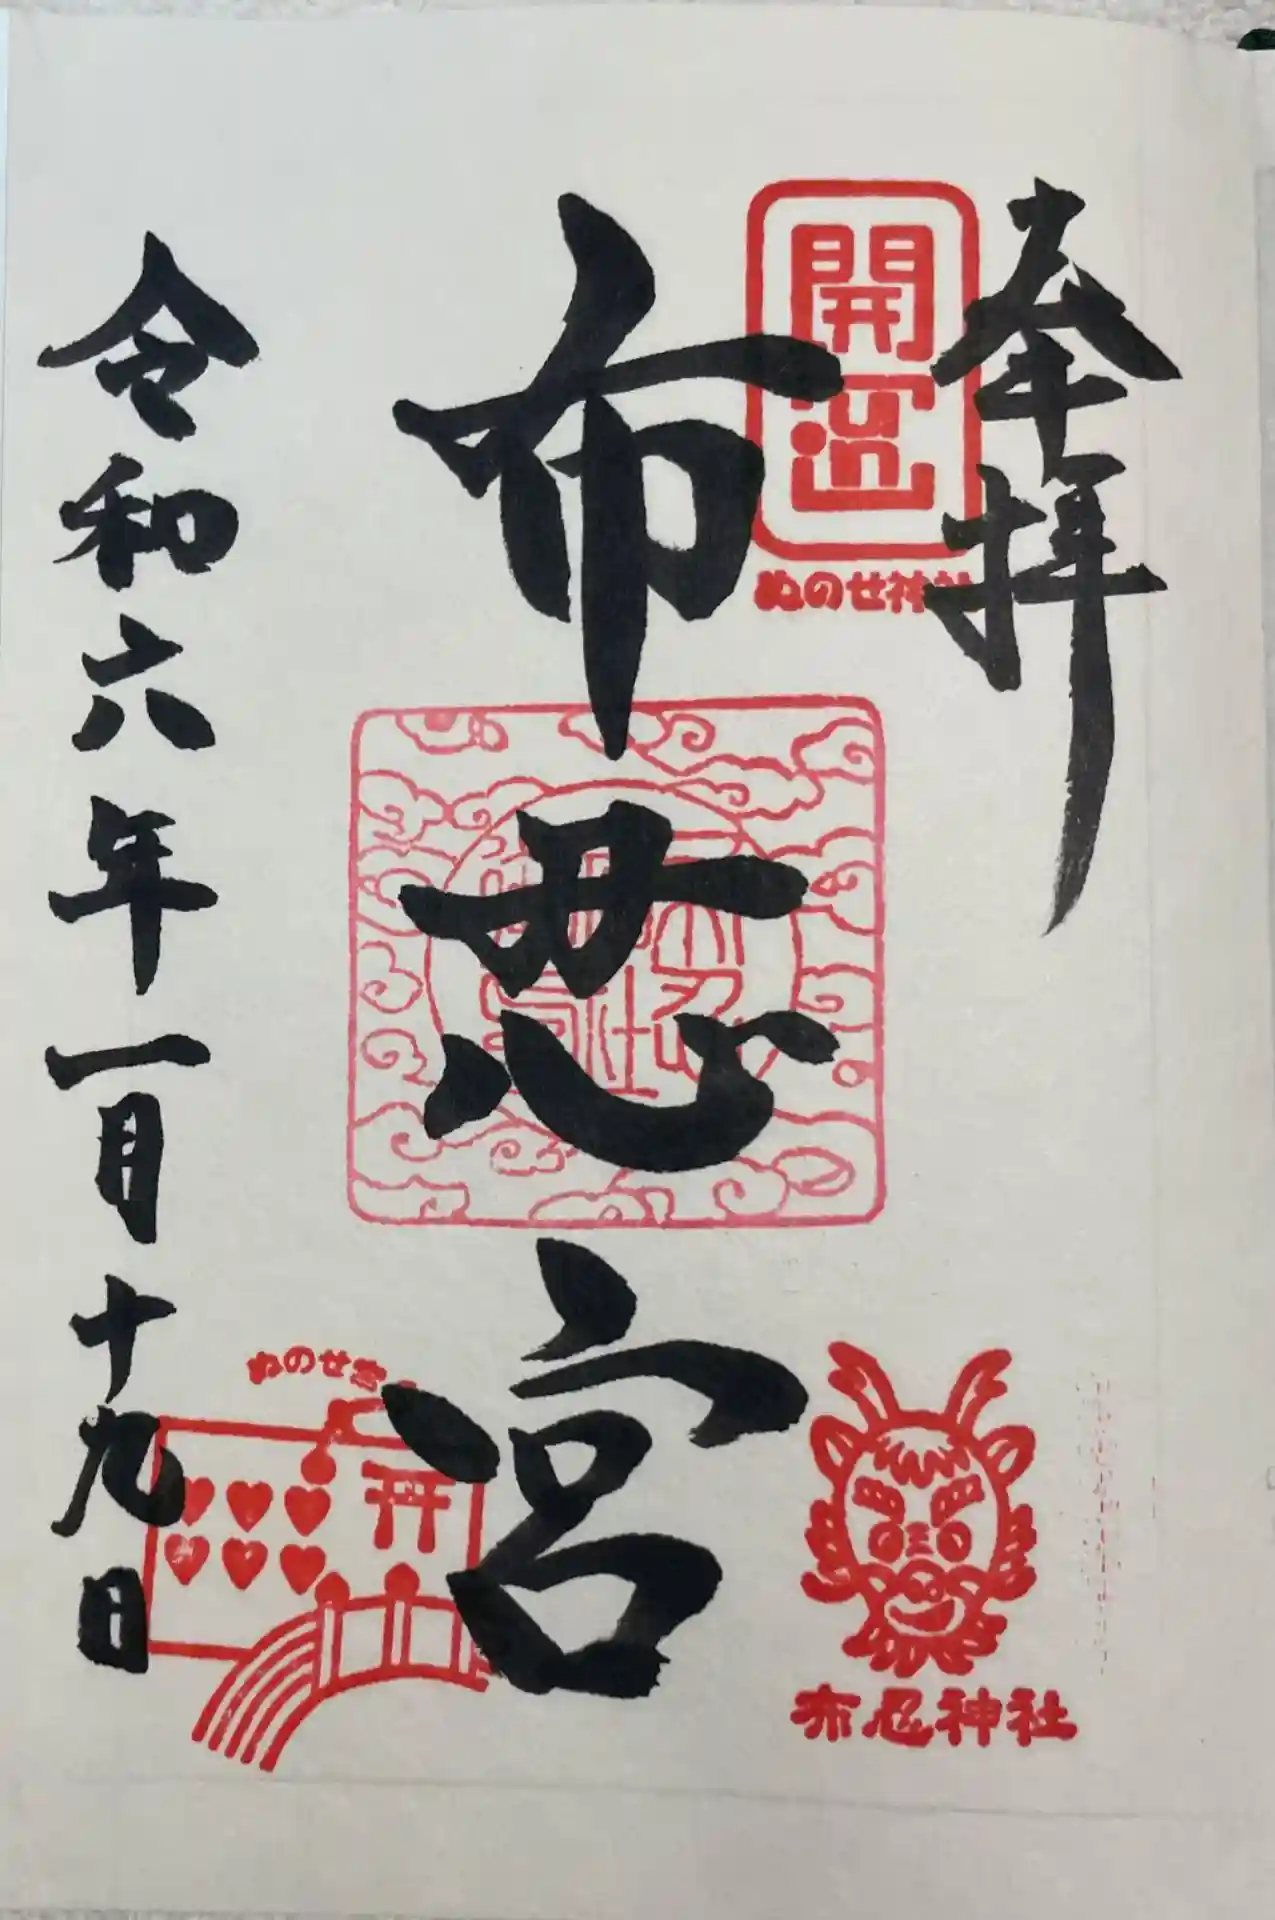 奉拝
開運
ぬのせ神社
布忍宮
布忍神社
ぬのせ宮
令和六年一月十九日